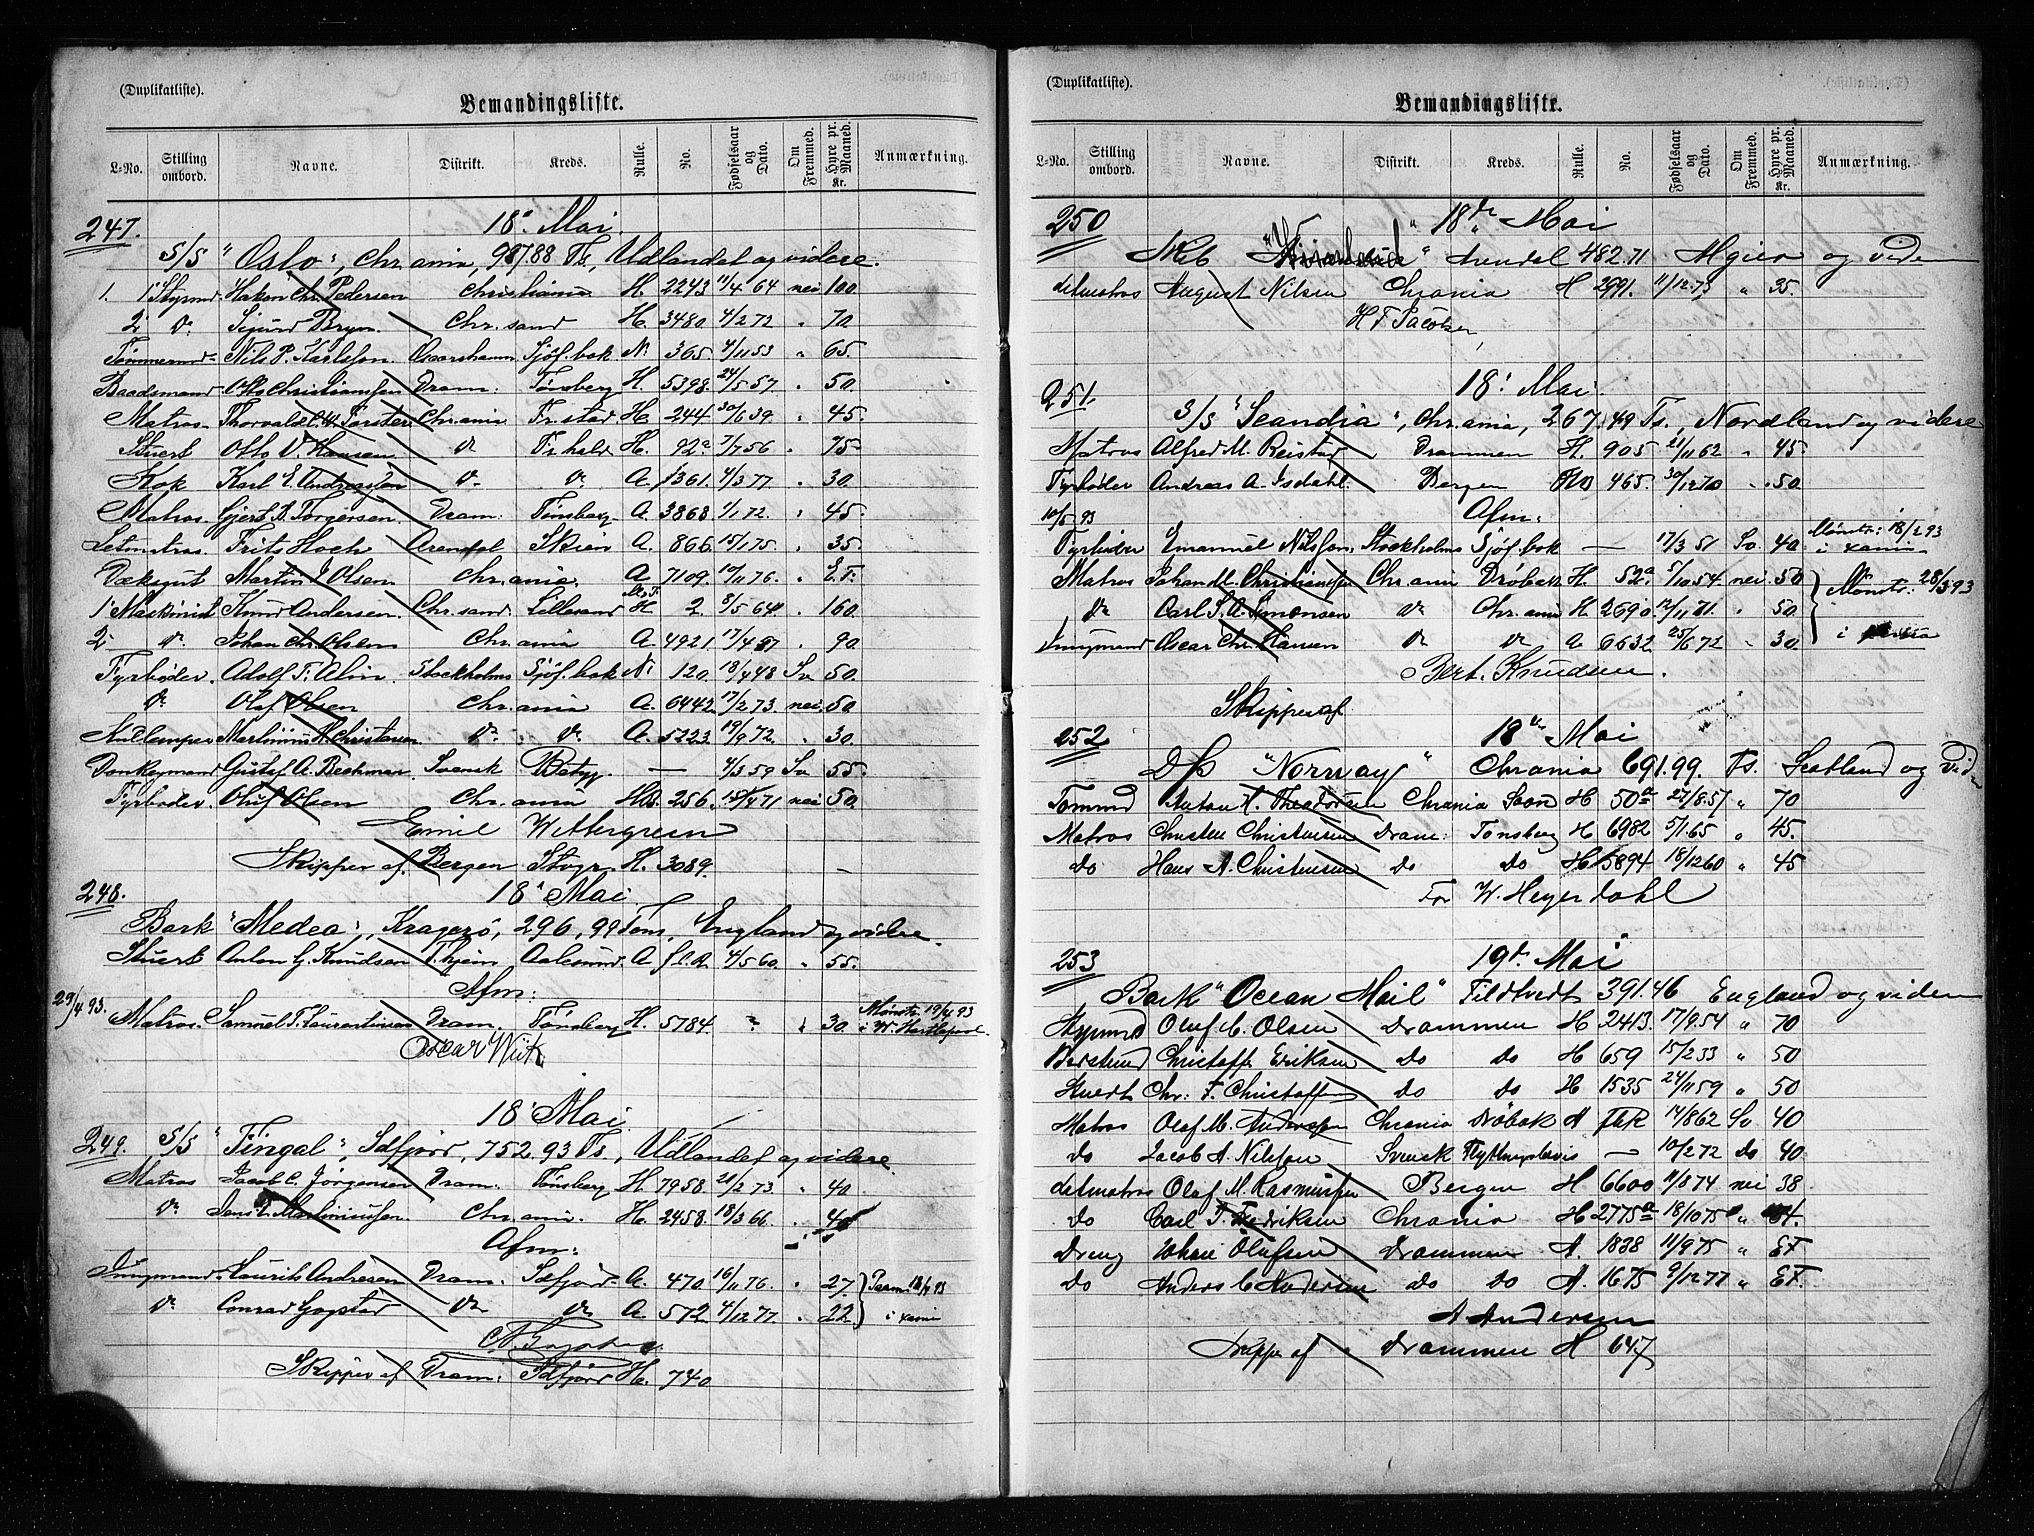 (Duplikatliste).
Bemandingsliste.
L-No. Stilling ombord. Navne. Distrikt. Kreds. Rulle. No. Fødselsaar og Dato. Om Fremmed. Hyre pr. Maaned. Kr. Anmærkning.
247. 18' Mai.
S/S "Oslo", Chr.ania, 987.88 Ts, Udlandet og videre.
1. 1' Styrmd Hakon Chr. Pedersen Christiania H. 2243 11/4 64 nei 100.
2' do Sigurd Bryn. Chr.sand H. 3480 4/2 72 " 70
Tømmermd. Nils P. Karlsson. Oscarshamn Sjöf.bok N. 365 4/11 53 " 65.
Baadsmand Otto Christiansen Dram. Tønsberg H. 5398 24/5 57. " 50
Matros. Thorvald C. W. Torster Chr.ania Fr.stad H. 244 30/6 39. " 45.
Stuert Otto V. Hansen do Fr.hald H. 92a 7/7 56 " 75
Kok Karl E. Andreassen do do A. 1361 4/3 77 " 30.
Matros. Gjert B. Torgersen. Dram. Tønsberg. A. 3868 1/1 72. " 45.
Letmatros. Frits Hoch Arendal Skien A. 866 15/1 75. " 35.
Dæksgut Martin E. Olsen Chr.ania. A 7109. 10/11 76. " E.F.
1' Maskinist Knud Andersen. Chr.sand. Lillesand H 2. 8/5 64 " 160.
2' do Johan Chr. Olsen Chr.ania A. 4921 17/4 57 " 90.
Fyrbøder. Adolf F. Alin. Stockholms Sjöf.bok N. 120. 18/4 48 Sv 50.
do Olaf Olsen Chr.ania A. 6442 17/2 73 nei 50
Kullemper Martinius H. Christensen do do A. 5223 19/9 72. " 30.
Donkeymand Gustaf A. Beckman Svensk Betyg. — 4/3 59 Sv 55.
Fyrbøder. Oluf Olsen Chr.ania HB. 256. 15/4 71 nei 50
Emil Wittergreen
Skipper af Bergen Stvgr. H. 3089.
248. 18' Mai.
Bark "Medea", Kragerø, 296,99 Tons, England og videre.
Stuert Anton G. Knudsen T.hjem Aalesund. A f.l.R. 4/5 60. " 55.
Afm:
29/4 93. Matros. Samuel T. Laurentiussen Dram. Tønsberg H. 5784 " " 30. Mønstr. 19/4 93 i W. Hartlepool
Oscar Wiik
18' Mai.
249. S/S "Fingal", Sdfjord, 752.93 Ts, Udlandet og videre.
Matros Jacob C. Jørgensen Dram. Tønsberg H. 7958. 20/2 73. " 40.
do Jens L. Martiniussen. Chr.ania. H. 2458. 18/3 66. " 40
Afm:
Jungmand. Laurits Andresen Dram. Sdfjord A. 470 16/11 76. " 27. Paam. 18/4 93
do Conrad Gogstad do do A. 572 4/12 77. " 22. i
Skipper af Dram. Sdfjord H. 740
(Duplikatliste).
Bemandingsliste.
L-No. Stilling ombord. Navne. Distrikt. Kreds. Rulle. No. Fødselsaar og Dato. Om Fremmed. Hyre pr. Maaned. Kr. Anmærkning.
250 18de Mai
Skib Arendal 482.71 Algier og viden
Letmatros August Nilsen Chrania H 2991. 11/12 73 " 35.
H F Jacobsen
251. 18' Mai.
S/S "Scandia", Chr.ania, 267.49 Ts., Nordland og videre
Matros Alfred M. Reistad Drammen H. 905 21/11 62 " 45.
Fyrbøder Andreas A. Isdahl. Bergen HB 465. 30/12 70 " 50.
10/5 93 Afm:
Fyrbøder Emanuel Nilsson. Stockholms Sjöf.bok — 17/3 51 Sv. 40 Mønstr. 18/2 93 i
Matros Johan L. Christiansen Chr.ania Drøbak H. 52a 5/10 54 nei 50 Mønstr. 28/3 93
do Carl S. A. Simonsen do Chr.ania H 2690. 12/11 71. " 50. i
Jungmand Oscar Chr. Hansen do do A 6632 25/6 72 " 30.
Bert. Knudsen.
Skipper af
252 18de Mai
D/S "Norway" Chrania 691.99. Ts. Scotland og vid.
Tømmd Anton H. Theodorsen Chrania Soon H 50a 27/8.57 " 70
Matros Christen Christensen Dram: Tønsberg H 6982 5/1.65 " 45.
do Hans A. Christensen do do H 5894 18/12 60 " 45
For W. Heyerdahl
253 19de Mai
Bark "Ocean Mail" Fildtvedt 391.46 England og viden
Styrmd Oluf C. Olsen Drammen H 2413. 17/9.54 " 70
Berstmd Christoffer Eriksen do do H 659 15/2 33 " 50
Stuert Chr: F. Christoffersen do do H 1535 24/11 59 " 50
Matros Olaf M. Andersson Chrania Drøbak A flR 14/8 62 Sv 40
do Jacob A. Nilsson Svensk Flyttningsbevis — 10/2 72 do 40.
Letmatros Olaf M. Rasmussen Bergen H 6600 11/8 74 nei 38.
do Carl F. Fredriksen Chrania H 2775a 18/10 75 "
Dreng Johan Olufsen Drammen A. 1838 11/9 75 " EF
do Anders C. Andersen do do A. 1675 9/12 77 " EF.
A Andersen
Skipper af Drammen H 647